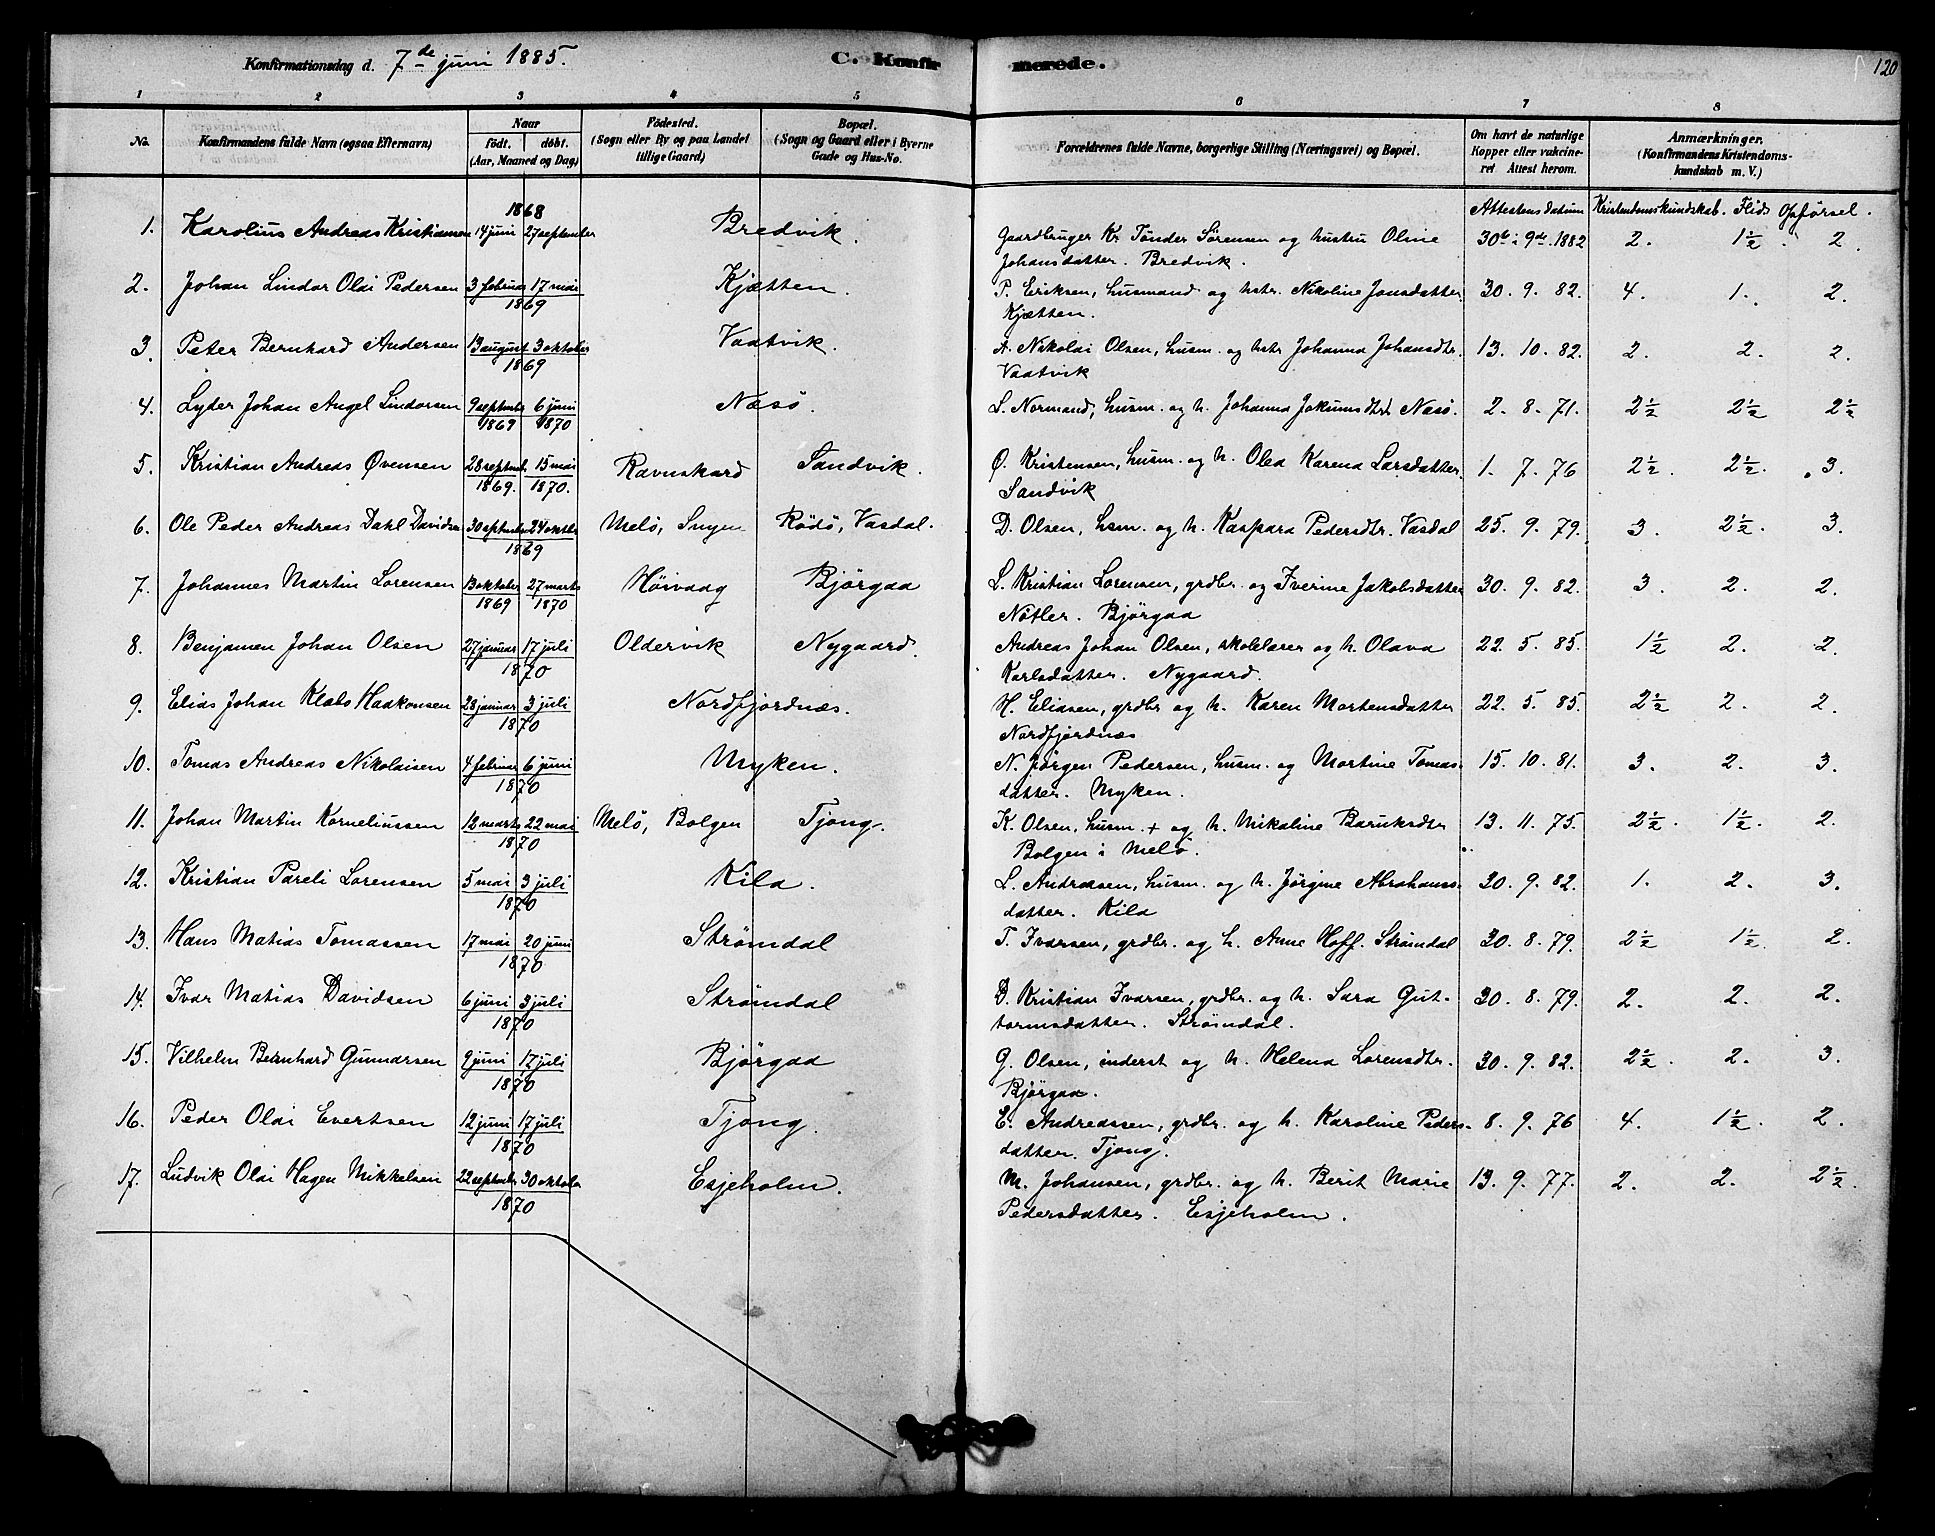 Konfirmationsdag d. 7de juni 1885. C. Konfirmerede. 120
1 2 3 4 5 6 7 8
No. Konfirmandens fulde Navn (ogsaa Efternavn) Naar födt. döbt. (Aar, Maaned og Dag) Födested. (Sogn eller By og paa Landet tillige Gaard) Bopæl. (Sogn og Gaard eller i Byerne Gade og Hus-No. Forældrenes fulde Navne, borgerlige Stilling (Næringsvei) og Bopæl. Om havt de naturlige Kopper eller vakcineret Attest herom. Anmærkninger. (Konfirmandens Kristendomskundskab m. V.)
Attestens datum Kristendomskundskab. Flids Opførsel.
1868
1. Karolius Andreas Kristiansen 14 juni 27 september Bredvik. Gaardbruger Kr. Tønder Sørensen og hustru Oline 30te i 9de. 1882 2. 1½. 2.
Johansdatter. Bredvik.
2. Johan Lindor Olai Pedersen 3 februar 17 mai Kjætten. P. Eriksen, husmand og hstr. Nikoline Jonsdatter. 30. 9. 82. 4. 1. 2.
1869 Kjætten.
3. Peter Bernhard Andersen 13 august 3 oktober Vaatvik. A. Nikolai Olsen, husm. og hstr Johanna Johansdtr. 13. 10. 82. 2. 2. 2.
1869 Vaatvik
4. Lyder Johan Angel Lindorsen 9 september 6 juni Næsø. L. Normand, husm. og h. Johanna Jokumsdtr Næsø. 2. 8. 71. 2½ 2½ 2½
1869 1870
5. Kristian Andreas Øvensen 28 septemb. 15 mai Ravnskard Sandvik. Ø. Kristensen, husm. og h. Olea Karena Larsdatter. 1. 7. 76 2½. 2½. 3.
1869. 1870. Sandvik
6. Ole Peder Andreas Dahl Davidsen 30 september 24 oktober Melø, Sugen Rödö, Vasdal. D. Olsen, hsm. og h. Kaspara Pedersdtr. Vasdal 25. 9. 79. 3. 2½. 3.
1869
7. Johannes Martin Lorensen 13 oktober 27 marts Høivaag Bjørgaa L. Kristian Lorensen, grdbr. og Iverine Jakobsdatter 30. 9. 82. 3. 2. 2.
1869 1870 Nøtler. Bjørgaa
8. Benjamen Johan Olsen 27 januar 17 juli Oldervik Nygaard. Andreas Johan Olsen, skolelærer og h. Olava 22. 5. 85. 1½ 2. 2.
1870 Karlsdatter. Nygaard.
9. Elias Johan Klæbo Haakonsen 28 januar 3 juli Nordfjordnæs. H. Eliasen, grdbr og h. Karen Mortensdatter 22. 5. 85. 2½ 2. 2.
1870 Nordfjordnæs
10. Tomas Andreas Nikolaisen 4 februar 6 juni Myken. N. Jörgen Pedersen, husm. og Martine Tomas- 15. 10. 81. 3. 2. 3.
1870 datter. Myken.
11. Johan Martin Korneliussen 12 marts 22 mai Melö, Bolgen Tjong. K. Olsen, husm. + og h. Nikoline Baruksdtr 13. 11. 75. 2½. 1½. 2.
1870 Bolgen i Melö.
12. Kristian Pareli Lorensen 5 mai 3 juli Kila. L. Andreasen, husm. og h. Jørgine Abrahams- 30. 9. 82. 1. 2. 3.
1870 datter. Kila
13. Hans Matias Tomassen 17 mai 20 juni Strömdal T. Ivarsen, grdbr. og h. Anne Hoff. Strömdal 30. 8. 79. 2½ 1½. 2.
1870
14. Ivar Matias Davidsen 6 juni 3 juli Strömdal D. Kristian Ivarsen, grdbr. og h. Sara Gut- 30. 8. 79. 2. 2. 2.
1870 tormsdatter. Strömdal.
15. Vilhelm Bernhard Gunnarsen 9 juni 17 juli Bjørgaa G. Olsen, inderst og h. Helena Lorensdtr. 30. 9. 82. 2½. 2. 3.
1870 Bjørgaa.
16. Peder Olai Evertsen 12 juni 17 juli Tjong. E. Andreassen, grdbr. og h. Karoline Peders- 8. 9. 76 4. 1½. 2.
1870 datter. Tjong.
17. Ludvik Olai Hagen Mikkelsen 22 september 30 oktober Esjeholm. M. Johansen, grdbr. og h. Berit Marie 13. 9. 77. 2. 2. 2½.
1870 Pedersdatter. Esjeholm.